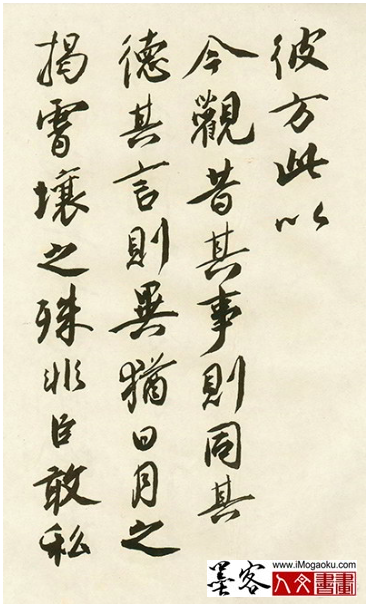 彼方此以
今觀昔其事則同其
德其言則異猶日月之
揭霄壤之殊非臣敢私
墨客
www.iMogaoku.com
人文書畫